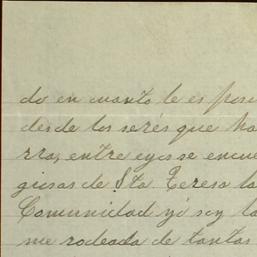 do en cuanto le es posi
desde los serés que ha
rra, entre eyos se encue
giosas de Sta Teresa la
Comunidad yó soy la
me rodeada de tantas